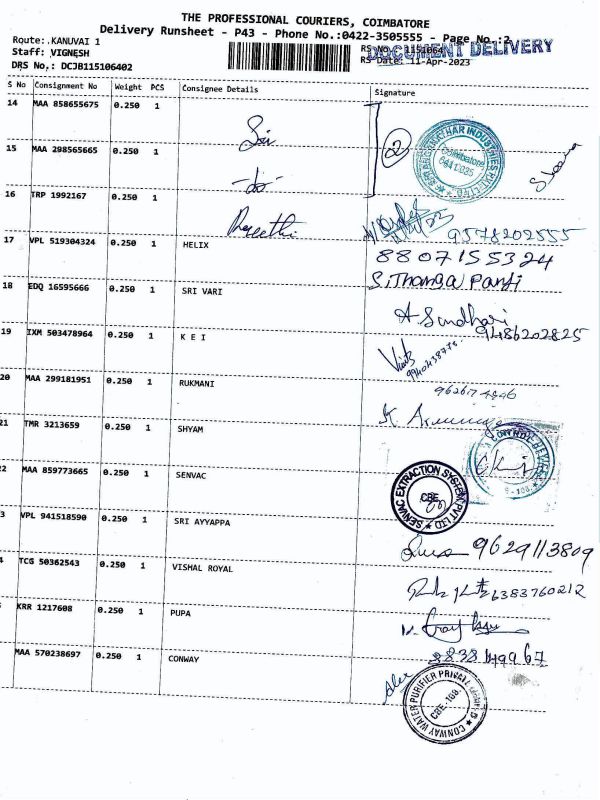 THE PROFESSIONAL COURIERS, COIMBATORE
Delivery Runsheet - P43 - Phone No.:0422-3505555 - Page No.:2
Route:.KANUVAI 1
Staff: VIGNESH
DRS No,: DCJB115106402
RS No. 1151064
DOCUMENT DELIVERY
RS Date: 11-Apr-2023
S No Consignment No Weight PCS Consignee Details Signature
14 MAA 858655675 0.250 1
2
15 MAA 298565665 0.250 1
16 TRP 1992167 0.250 1 Preethi
9578202555
17 VPL 519304324 0.250 1 HELIX
8807155324
S.Thanga Pandi
18 EDQ 16595666 0.250 1 SRI VARI
A Sundhari
9486202825
19 IXM 503478964 0.250 1 K E I
20 MAA 299181951 0.250 1 RUKMANI
21 TMR 3213659 0.250 1 SHYAM
2 MAA 859773665 0.250 1 SENVAC
SENVAC EXTRACTION SYSTEM PVT LTD
CBE
3 VPL 941518590 0.250 1 SRI AYYAPPA
9629113809
4 TCG 50362543 0.250 1 VISHAL ROYAL
6383760212
KRR 1217608 0.250 1 PUPA
MAA 570238697 0.250 1 CONWAY
CONWAY WATER PURIFIER PRIVATE LIMITED
CBE-108.